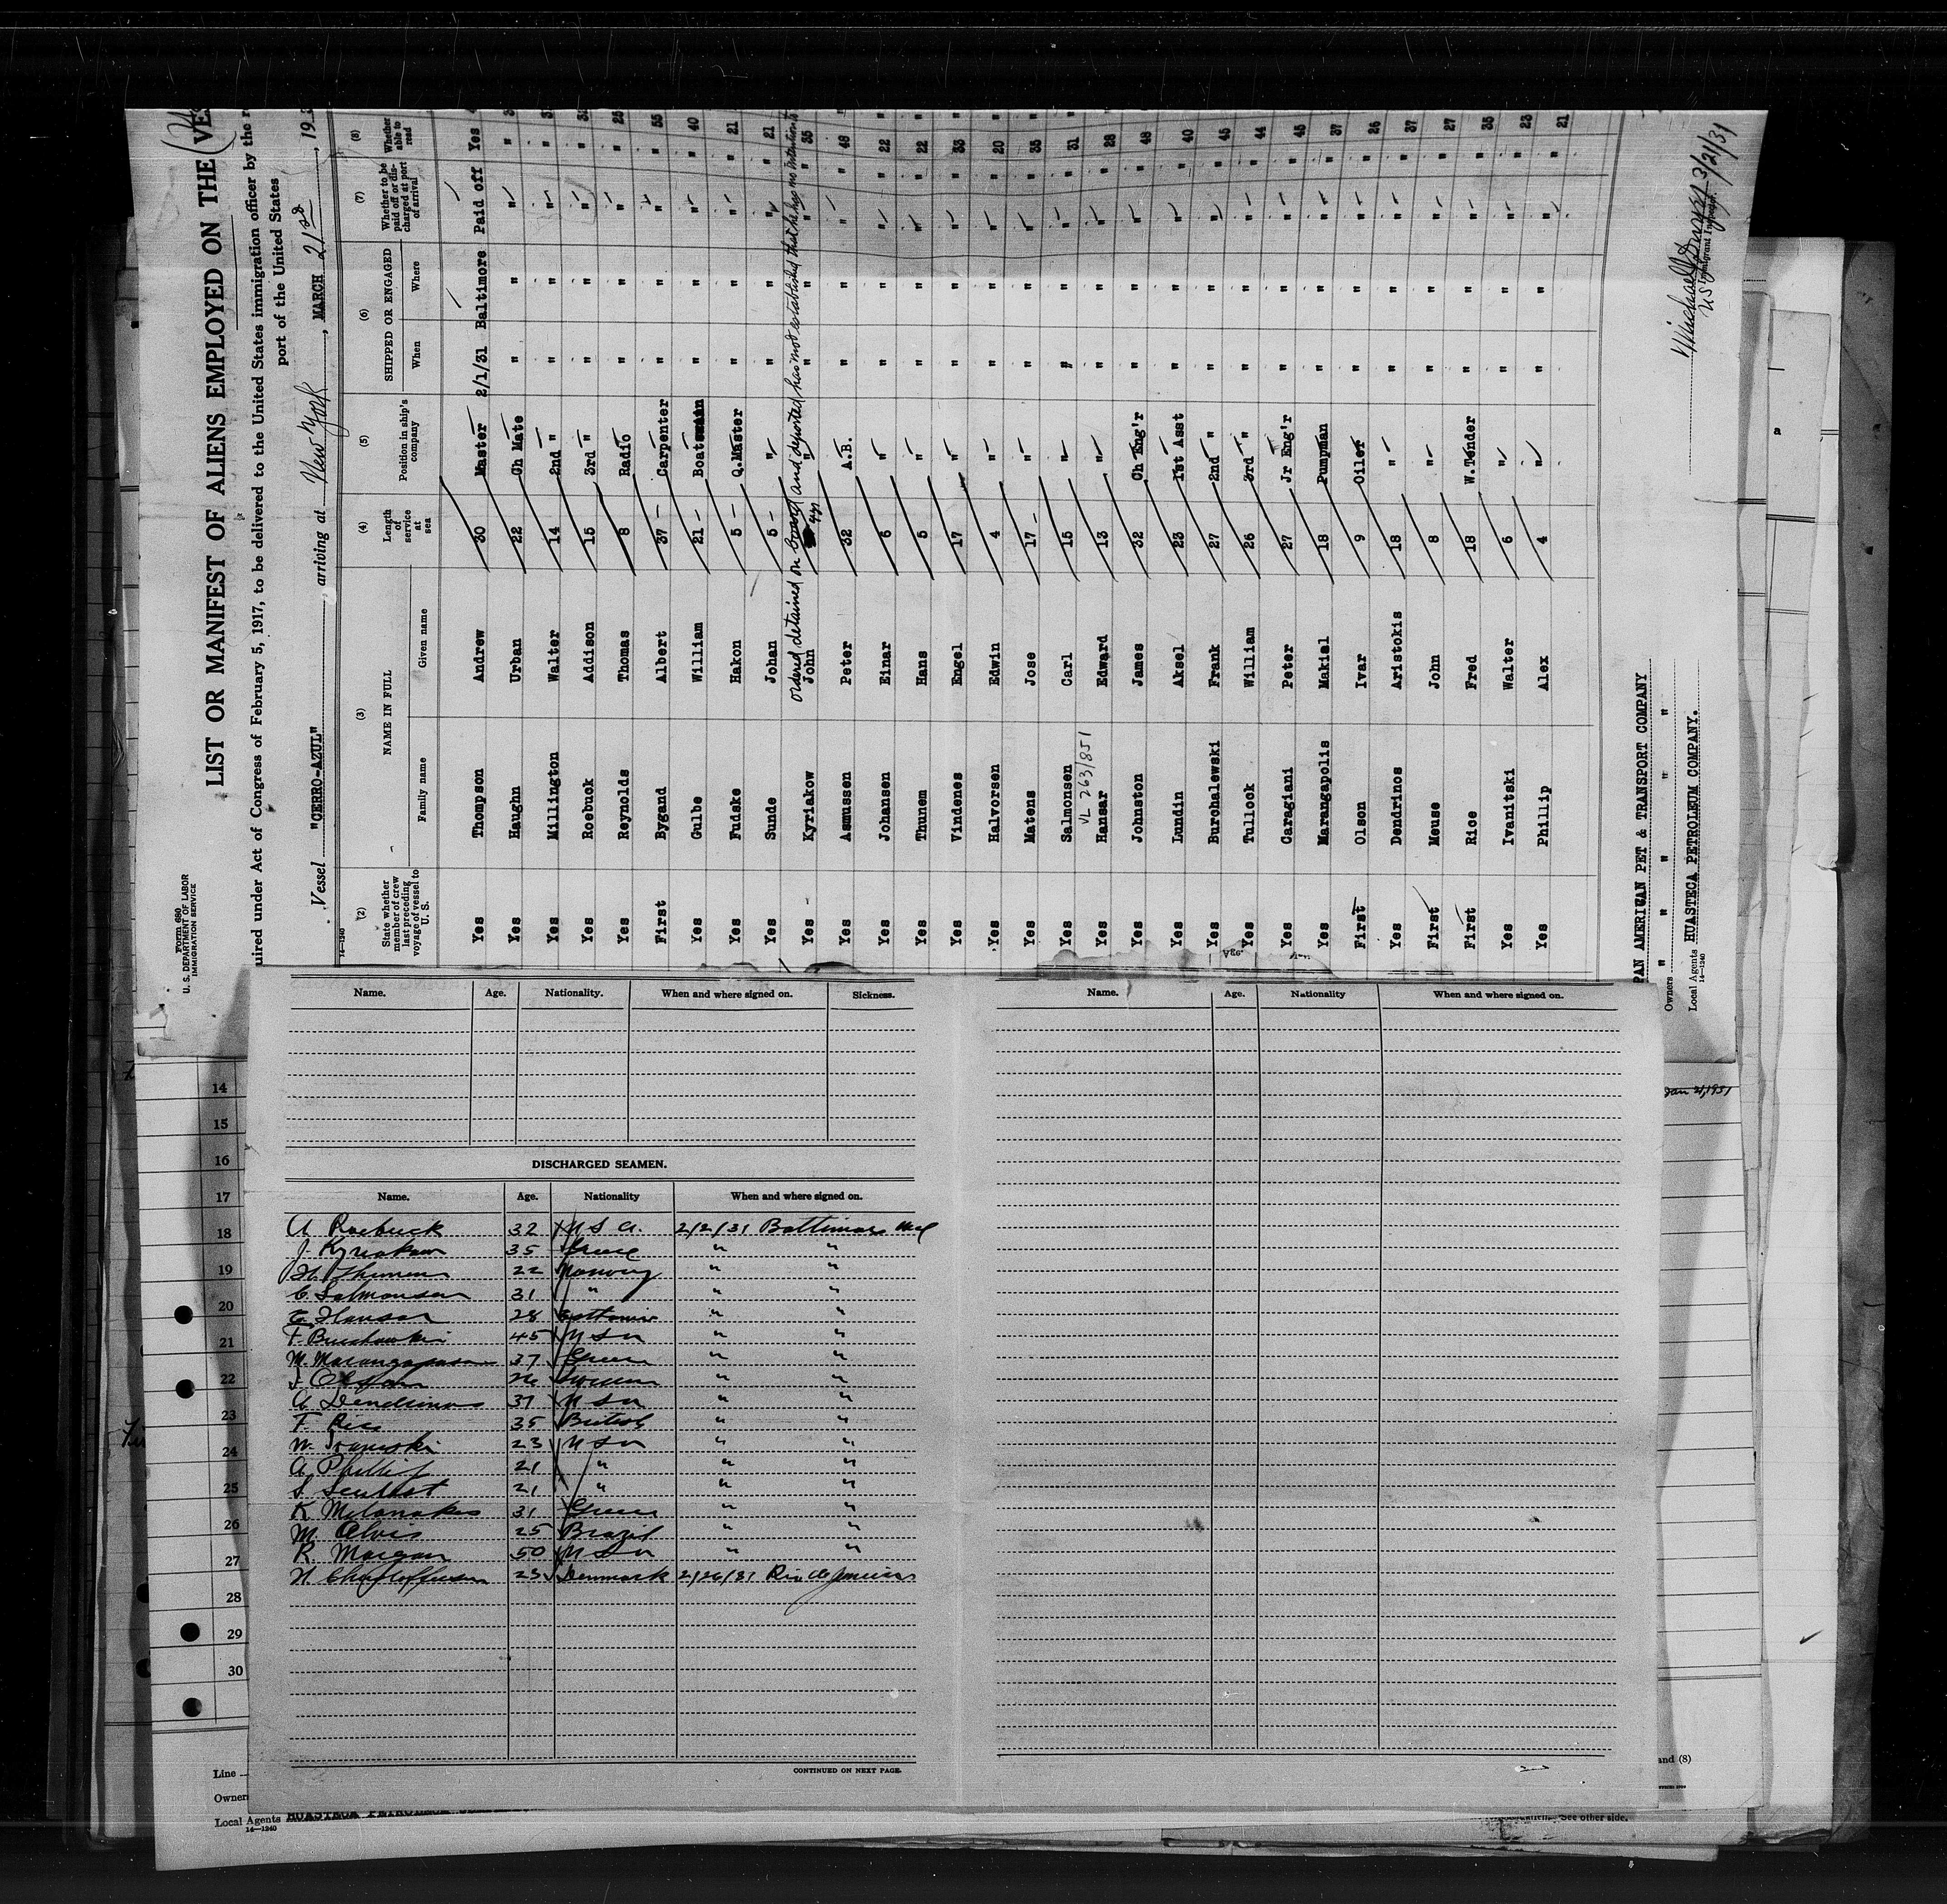 Form 680
U. S. DEPARTMENT OF LABOR
IMMIGRATION SERVICE
LIST OR MANIFEST OF ALIENS EMPLOYED ON THE
uired under Act of Congress of February 5, 1917, to be delivered to the United States immigration officer by the
port of the United States
Vessel "CERRO-AZUL" , arriving at New York , MARCH 21st , 19
14—1240
(2) (3) (4) (5) (6) (7) (8)
State whether member of crew last preceding voyage of vessel to U. S. NAME IN FULL Length of service at sea Position in ship's company SHIPPED OR ENGAGED Whether to be paid off or discharged at port of arrival Whether able to read
Family name Given name When Where
Yes Thompson Andrew 30 Master 2/1/31 Baltimore Paid off Yes
Yes Haughn Urban 22 Ch Mate " " " "
Yes Millington Walter 14 2nd " " " " "
Yes Roebuck Addison 15 3rd " " " " "
Yes Reynolds Thomas 8 Radio " " " " 25
First Bygand Albert 37 Carpenter " " " " 55
Yes Gulbe William 21 Boatswain " " " " 40
Yes Fudske Hakon 5 Q.Master " " " " 21
Yes Sunde Johan 5 " " " " " 21
ordered detained on board and deported has not established that he has no intention to
Yes Kyriakow John 4 yr " " " " " 35
Yes Asmussen Peter 32 A.B. " " " " 48
Yes Johansen Einar 6 " " " " " 22
Yes Thunem Hans 5 " " " " " 22
Yes Vindenes Engel 17 " " " " " 33
Yes Halvorsen Edwin 4 " " " " " 20
Yes Matens Jose 17 " " " " " 35
Yes Salmonsen Carl 15 " " " " " 31
VL 263/851
Yes Hansar Edward 13 " " " " " 28
Yes Johnston James 32 Ch Eng'r " " " " 48
Yes Lundin Aksel 23 1st Asst " " " " 40
Yes Burchalewski Frank 27 2nd " " " " " 45
Yes Tullock William 26 3rd " " " " " 44
Yes Caragiani Peter 27 Jr Eng'r " " " " 45
Yes Marangapolis Makial 18 Pumpman " " " " 37
First Olson Ivar 9 Oiler " " " " 26
Yes Dendrinos Aristokis 18 " " " " " 37
First Meuse John 8 " " " " " 27
First Rice Fred 18 W.Tender " " " " 35
Yes Ivanitski Walter 6 " " " " " 23
Yes Phillip Alex 4 " " " " " 21
PAN AMERICAN PET & TRANSPORT COMPANY
Owners " " " " "
Local Agents HUASTECA PETROLEUM COMPANY.
14—1240
3/21/31
Immigrant Inspector.
Name. Age. Nationality. When and where signed on. Sickness.
Name. Age. Nationality When and where signed on.
DISCHARGED SEAMEN.
Name. Age. Nationality When and where signed on.
A Roebuck 32 U S A. 2/2/31 Baltimore Md
J. Kyriakow 35 Greece " "
H. Thunem 22 Norway " "
C. Salmonsen 31 " " "
E. Hansar 28 " "
F. 45 U S A " "
M. 37 Greece " "
I Olson 26 Sweden " "
A Dendrinos 37 U S A " "
F Rice 35 British " "
W. Ivanitski 23 U S A " "
A Phillip 21 " " "
S 21 " " "
K Milonakes 31 Greece " "
M. Alvis 25 Brazil " "
R Morgan 50 U S A " "
H Christoffersen 23 Denmark 2/26/31 Rio de Janeiro
CONTINUED ON NEXT PAGE.
14
15
16
17
18
19
20
21
22
23
24
25
26
27
28
29
30
Jan 21, 1931
Line
Owner
Local Agents
14—1240
and (8)
See other side.